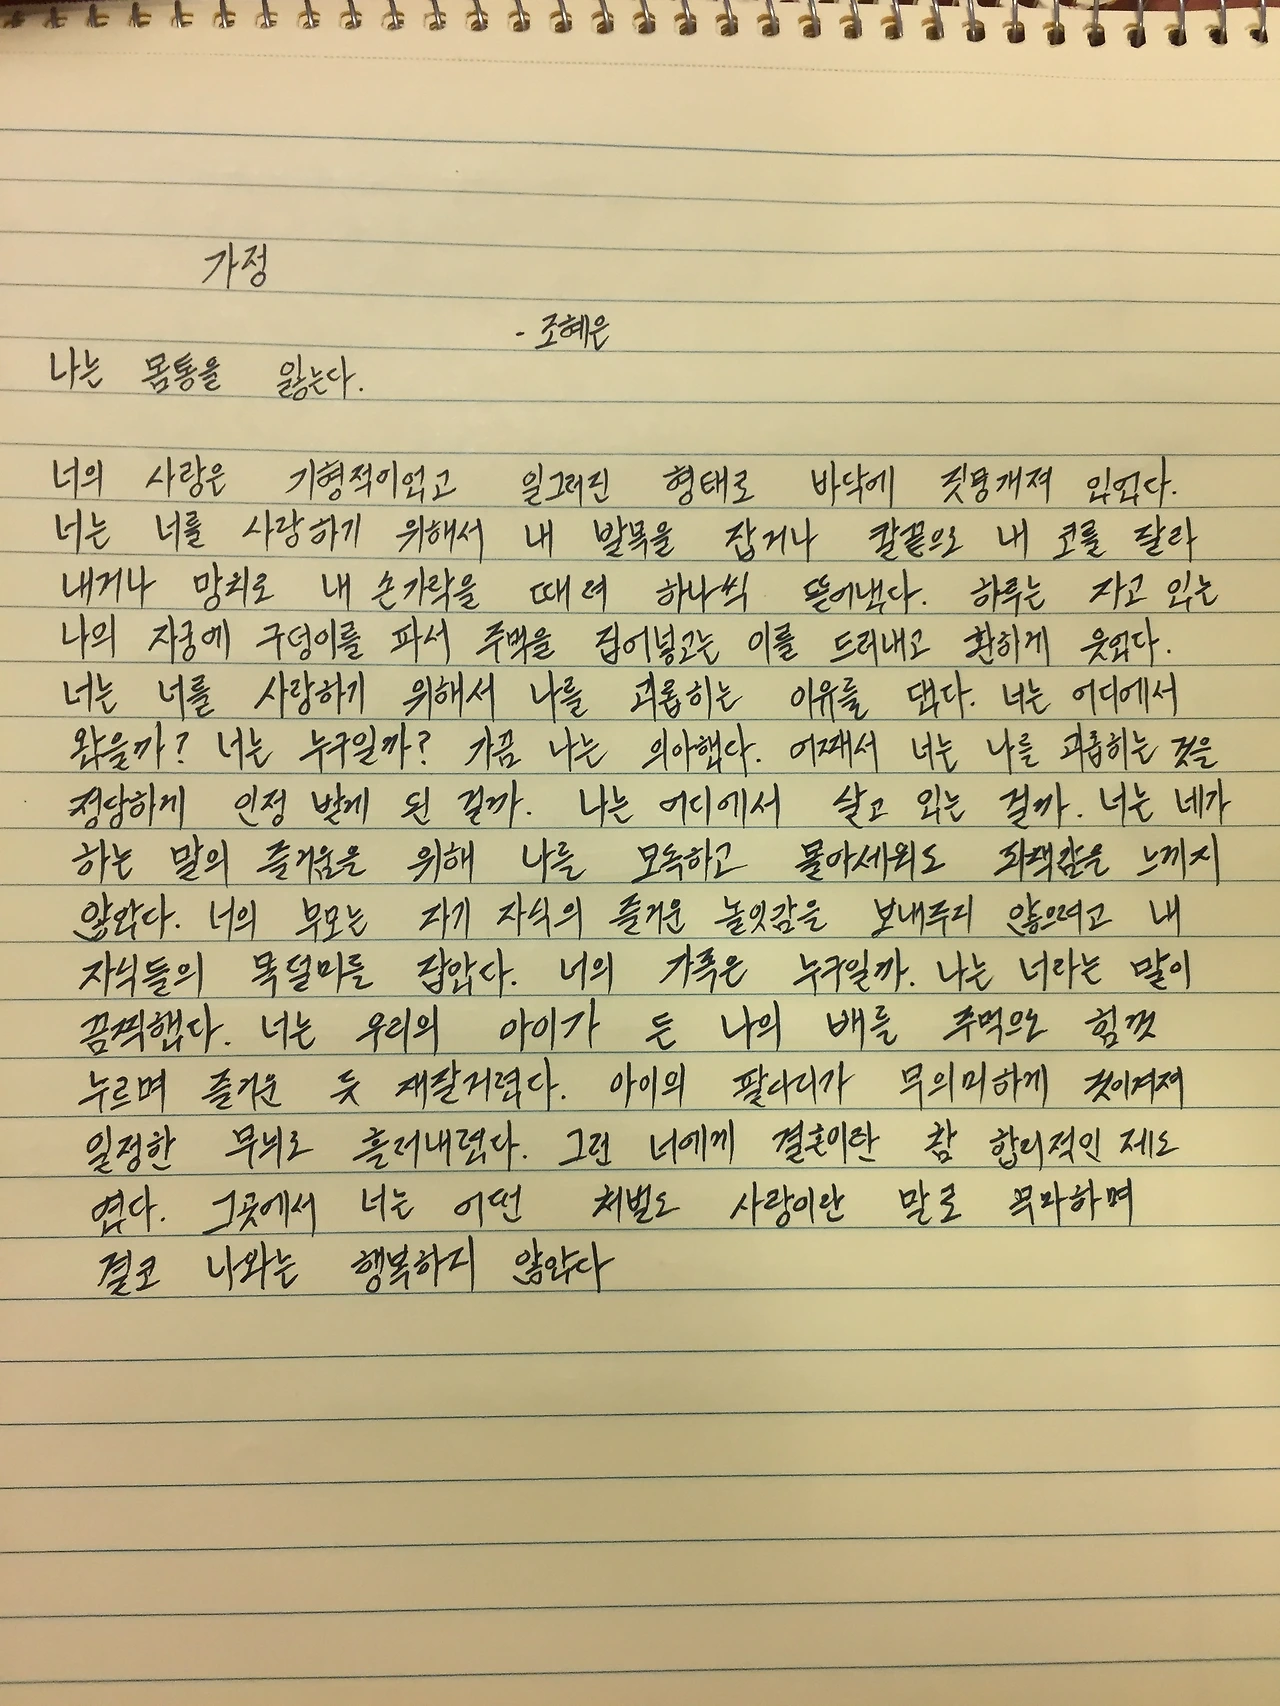 가정
- 조혜은
나는 몸통을 잃는다.
너의 사랑은 기형적이었고 일그러진 형태로 바닥에 짓뭉개져 있었다.
너는 너를 사랑하기 위해서 내 발목을 잡거나 칼끝으로 내 코를 잘라
내거나 망치로 내 손가락을 때려 하나씩 뜯어냈다. 하루는 자고 있는
나의 자궁에 구덩이를 파서 주먹을 집어넣고는 이를 드러내고 환하게 웃었다.
너는 너를 사랑하기 위해서 나를 괴롭히는 이유를 댔다. 너는 어디에서
왔을까? 너는 누구일까? 가끔 나는 의아했다. 어째서 너는 나를 괴롭히는 것을
정당하게 인정 받게 된 걸까. 나는 어디에서 살고 있는 걸까. 너는 네가
하는 말의 즐거움을 위해 나를 모독하고 몰아세워도 죄책감을 느끼지
않았다. 너의 부모는 자기 자식의 즐거운 놀잇감을 보내주지 않으려고 내
자식들의 목덜미를 잡았다. 너의 가족은 누구일까. 나는 너라는 말이
끔찍했다. 너는 우리의 아이가 든 나의 배를 주먹으로 힘껏
누르며 즐거운 듯 재잘거렸다. 아이의 팔다리가 무의미하게 찢어져
일정한 무늬로 흘러내렸다. 그런 너에게 결혼이란 참 합리적인 제도
였다. 그곳에서 너는 어떤 처벌도 사랑이란 말로 무마하며
결코 나와는 행복하지 않았다